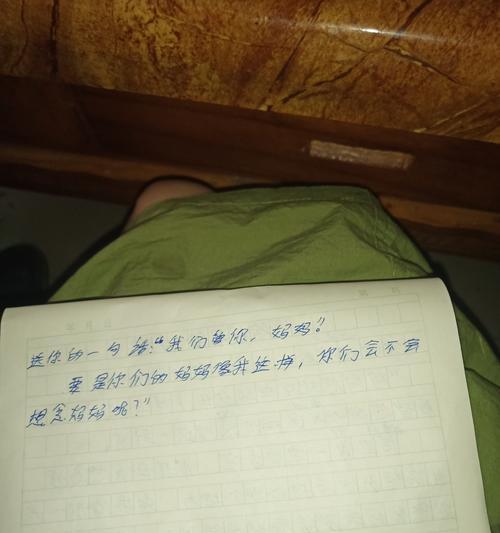 送你的一句话:“我们每你,妈妈。”
要是你们的妈妈像我这样,你们会不会
想念妈妈呢?”